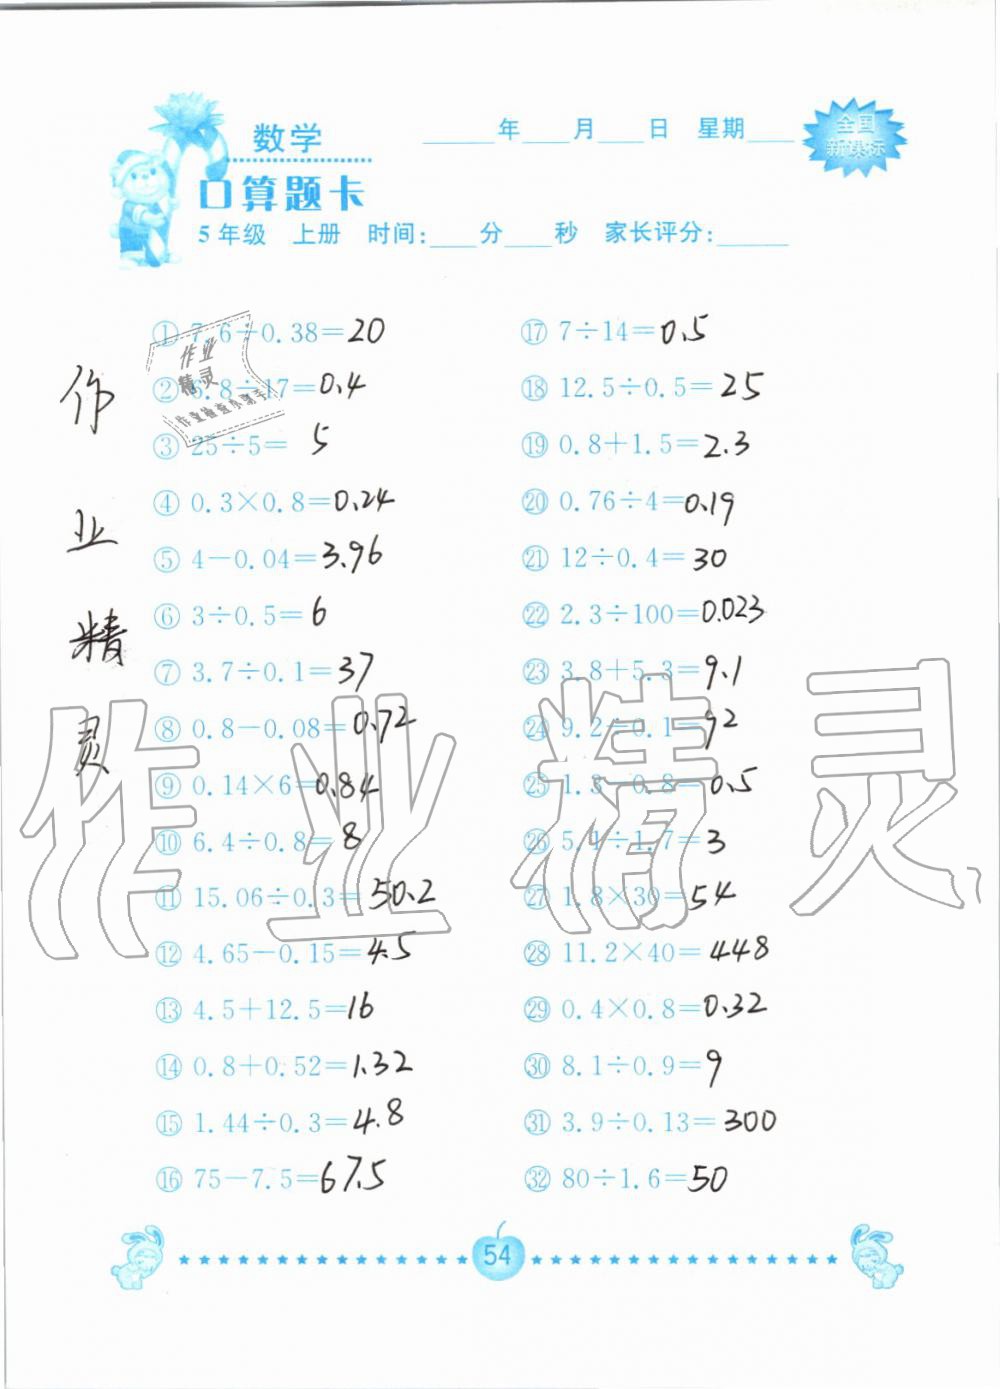 数学
____年____月____日 星期____
全国
新课标
口算题卡
5年级 上册 时间:____分____秒 家长评分:____
① 7.6÷0.38=20
② 6.8÷17=0.4
③ 25÷5=5
④ 0.3×0.8=0.24
⑤ 4-0.04=3.96
⑥ 3÷0.5=6
⑦ 3.7÷0.1=37
⑧ 0.8-0.08=0.72
⑨ 0.14×6=0.84
⑩ 6.4÷0.8=8
⑪ 15.06÷0.3=50.2
⑫ 4.65-0.15=4.5
⑬ 4.5+12.5=16
⑭ 0.8+0.52=1.32
⑮ 1.44÷0.3=4.8
⑯ 75-7.5=67.5
⑰ 7÷14=0.5
⑱ 12.5÷0.5=25
⑲ 0.8+1.5=2.3
⑳ 0.76÷4=0.19
㉑ 12÷0.4=30
㉒ 2.3÷100=0.023
㉓ 3.8+5.3=9.1
㉔ 9.2÷0.1=92
㉕ 1.3-0.8=0.5
㉖ 5.1÷1.7=3
㉗ 1.8×30=54
㉘ 11.2×40=448
㉙ 0.4×0.8=0.32
㉚ 8.1÷0.9=9
㉛ 3.9÷0.13=300
㉜ 80÷1.6=50
作
业
精
灵
作业
精灵
作业检查小帮手
作业精灵
54